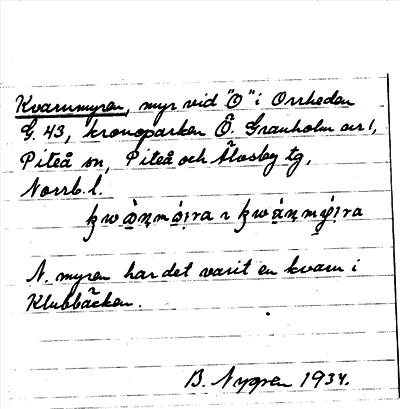 Kvarnmyren, myr vid "O" i Orrheden
G. 43, kronoparken Ö. Granholm
Piteå sn, Piteå och Älvsby tg,
Norrb. l.
N. myren har det varit en kvarn i
Klubbäcken.
B. Nygren 1934.